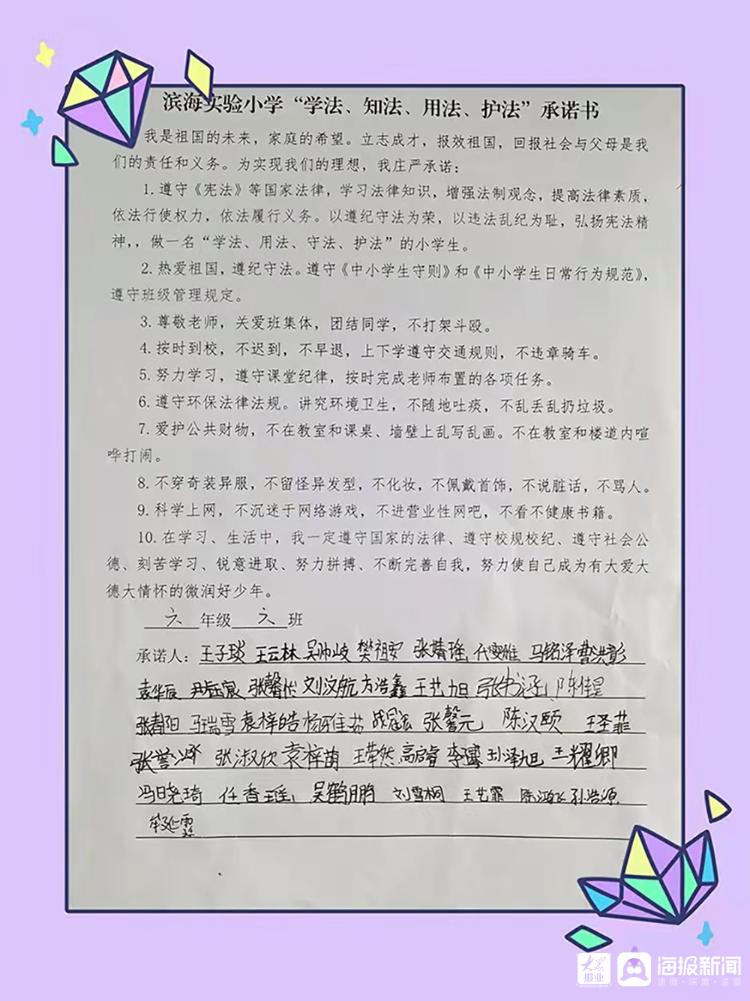 滨海实验小学“学法、知法、用法、护法”承诺书
我是祖国的未来，家庭的希望。立志成才，报效祖国，回报社会与父母是我
们的责任和义务。为实现我们的理想，我庄严承诺：
1.遵守《宪法》等国家法律，学习法律知识，增强法制观念，提高法律素质，
依法行使权力，依法履行义务。以遵纪守法为荣，以违法乱纪为耻，弘扬宪法精
神，，做一名“学法、用法、守法、护法”的小学生。
2.热爱祖国，遵纪守法。遵守《中小学生守则》和《中小学生日常行为规范》，
遵守班级管理规定。
3.尊敬老师，关爱班集体，团结同学，不打架斗殴。
4.按时到校，不迟到，不早退，上下学遵守交通规则，不违章骑车。
5.努力学习，遵守课堂纪律，按时完成老师布置的各项任务。
6.遵守环保法律法规。讲究环境卫生，不随地吐痰，不乱丢乱扔垃圾。
7.爱护公共财物，不在教室和课桌、墙壁上乱写乱画。不在教室和楼道内喧
哗打闹。
8.不穿奇装异服，不留怪异发型，不化妆，不佩戴首饰，不说脏话，不骂人。
9.科学上网，不沉迷于网络游戏，不进营业性网吧，不看不健康书籍。
10.在学习、生活中，我一定遵守国家的法律、遵守校规校纪、遵守社会公
德、刻苦学习、锐意进取、努力拼搏、不断完善自我，努力使自己成为有大爱大
德大情怀的微润好少年。
六年级六班
承诺人：王子琰 王云林 樊祖安 张蓿瑶 马铭泽 曹洪彰
袁华辰 刘汶航 方浩鑫 王艺旭 张书涵 陈佳星
张春阳 马瑞雪 袁梓皓 张馨元 陈汉颐 王圣菲
张淑欣 袁梓萌 王荣然 高启睿 王耀卿
冯晓琦 任香瑶 吴鹤鹏 刘雪桐 王艺霏 孙浩源
大众报业 海报新闻
速度·深度·温度